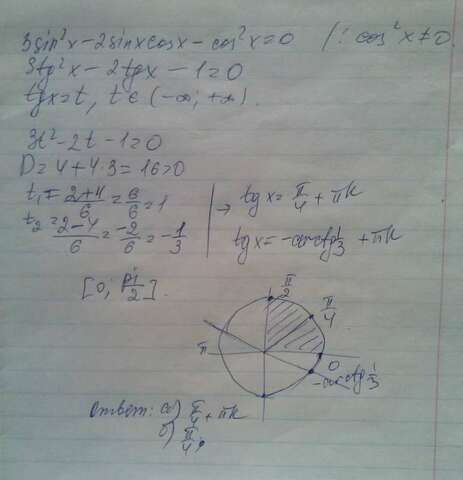 3sin²x-2sinxcosx-cos²x=0 /: cos²x≠0.
3tg²x-2tgx-1=0
tgx=t, t∈(-∞;+∞).
3t²-2t-1=0
D=4+4·3=16>0
t₁=2+4/6=6/6=1
t₂=2-4/6=-2/6=-1/3
→ tgx=π/4+πk
tgx=-arctg1/3+πk
[0; π/2].
π/2
π/4
π
0
-arctg1/3
ответ: а) π/4+πk
б) π/4;